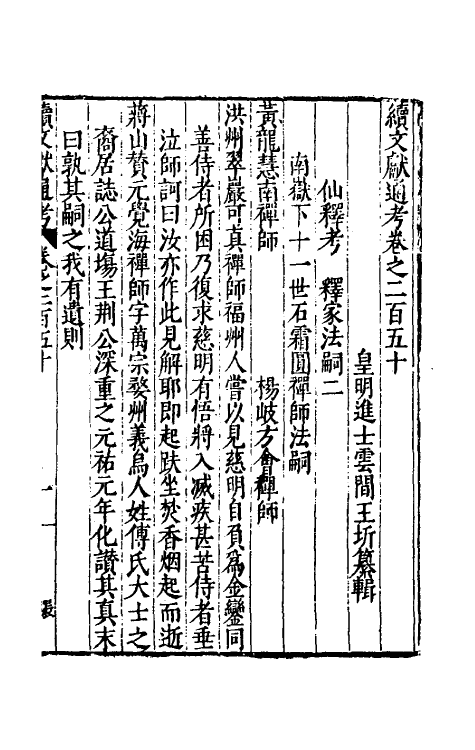 續文獻通考卷之二百五十
皇明進士雲間王圻纂輯
仙釋考　釋家法嗣二
南嶽下十一世石霜圓禪師法嗣
黃龍慧南禪師　楊岐方會禪師
洪州翠嚴可真禪師福州人嘗以見慈明自負爲金鑾同
善侍者所困乃復求慈明有悟將入滅疾甚苦侍者垂
泣師訶曰汝亦作此見解耶即起趺坐焚香烟起而逝
蔣山贊元覺海禪師字萬宗婺州義烏人姓傅氏大士之
裔居誌公道場王荆公深重之元祐元年化讚其真末
曰孰其嗣之我有遺則
續文獻通考　卷之二百五十